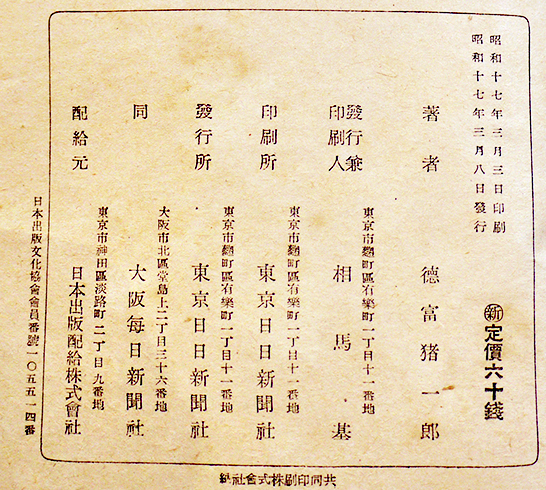 昭和十七年三月三日印刷
昭和十七年三月八日發行
㊟新定價六十錢
著者 德富猪一郎
東京市麴町區有樂町一丁目十一番地
發行兼印刷人 相馬基
東京市麴町區有樂町一丁目十一番地
印刷所 東京日日新聞社
東京市麴町區有樂町一丁目十一番地
發行所 東京日日新聞社
大阪市北區堂島上二丁目三十六番地
同 大阪每日新聞社
東京市神田區淡路町二丁目九番地
配給元 日本出版配給株式會社
日本出版文化協會會員番號一〇五五一四番
共同印刷株式会社